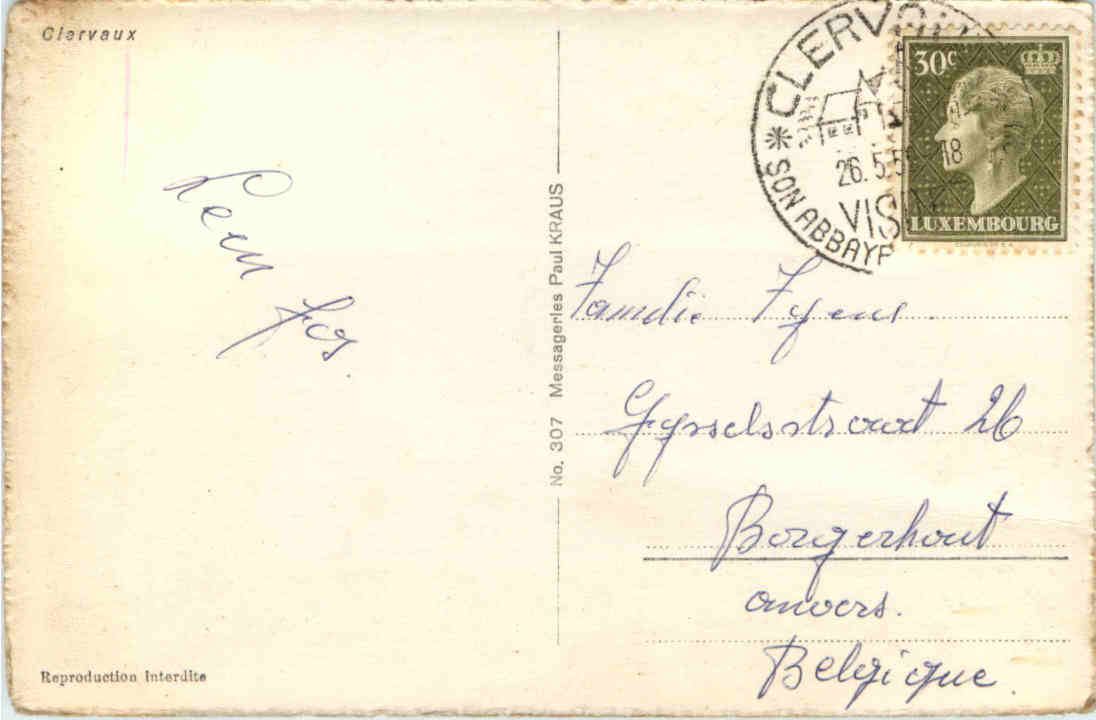 Clervaux
30c
LUXEMBOURG
CLERV
26.5.5 18
VIS
SON ABBAYE
Leen Jos.
No. 307 Messageries Paul KRAUS
Familie
Gysselsstraat 26
Borgerhout
anvers.
Belgique.
Reproduction Interdite